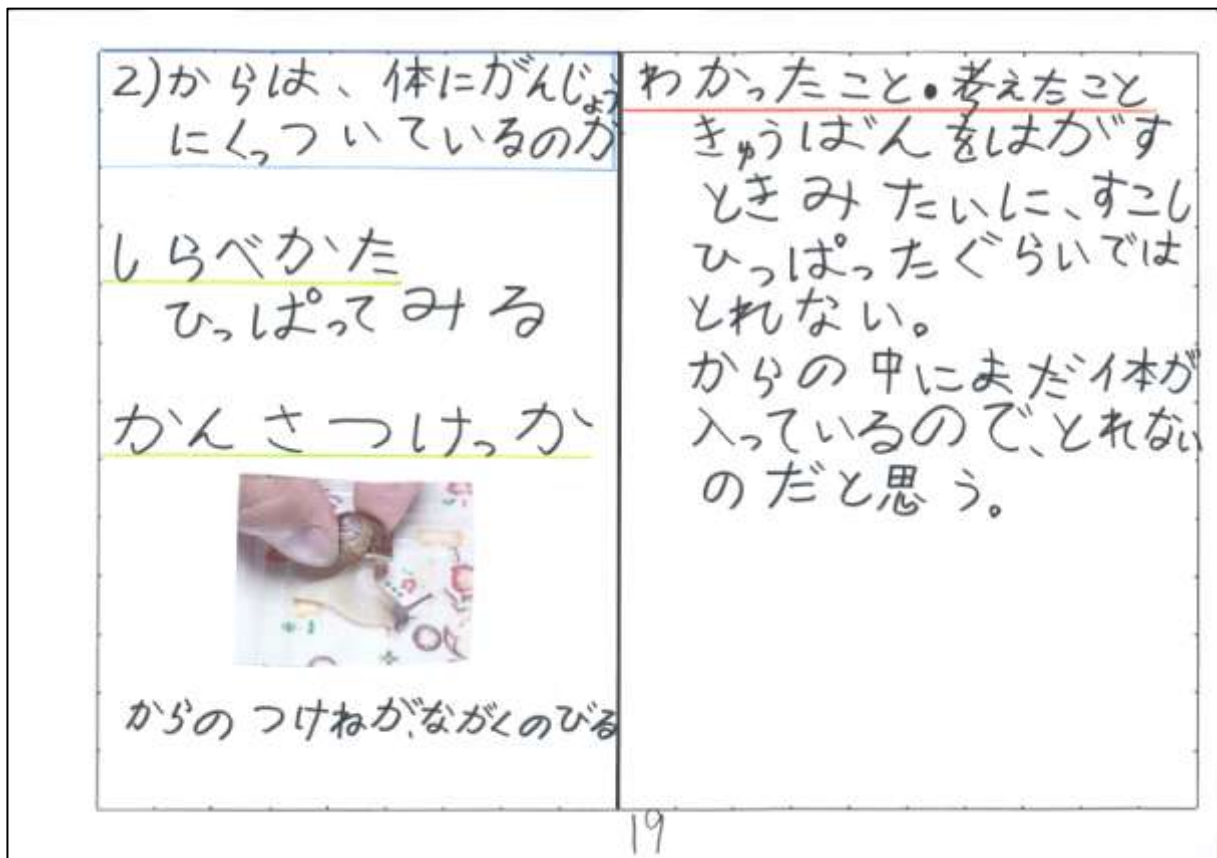 2)からは、体にがんじょう
にくっついているのか
しらべかた
ひっぱってみる
かんさつけっか
からのつけねが、ながくのびる
わかったこと・考えたこと
きゅうばんをはがす
ときみたいに、すこし
ひっぱったぐらいでは
とれない。
からの中にまだ体が
入っているので、とれない
のだと思う。
19